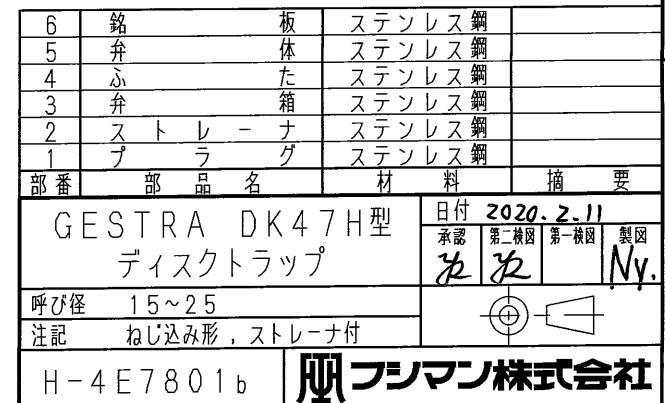 6 銘板 ステンレス鋼
5 弁体 ステンレス鋼
4 ふた ステンレス鋼
3 弁箱 ステンレス鋼
2 ストレーナ ステンレス鋼
1 プラグ ステンレス鋼
部番 部品名 材料 摘要
GESTRA DK47H型
ディスクトラップ
日付 2020.2.11
承認 第二検図 第一検図 製図
Ny.
呼び径 15~25
注記 ねじ込み形，ストレーナ付
H-4E7801b
フシマン株式会社